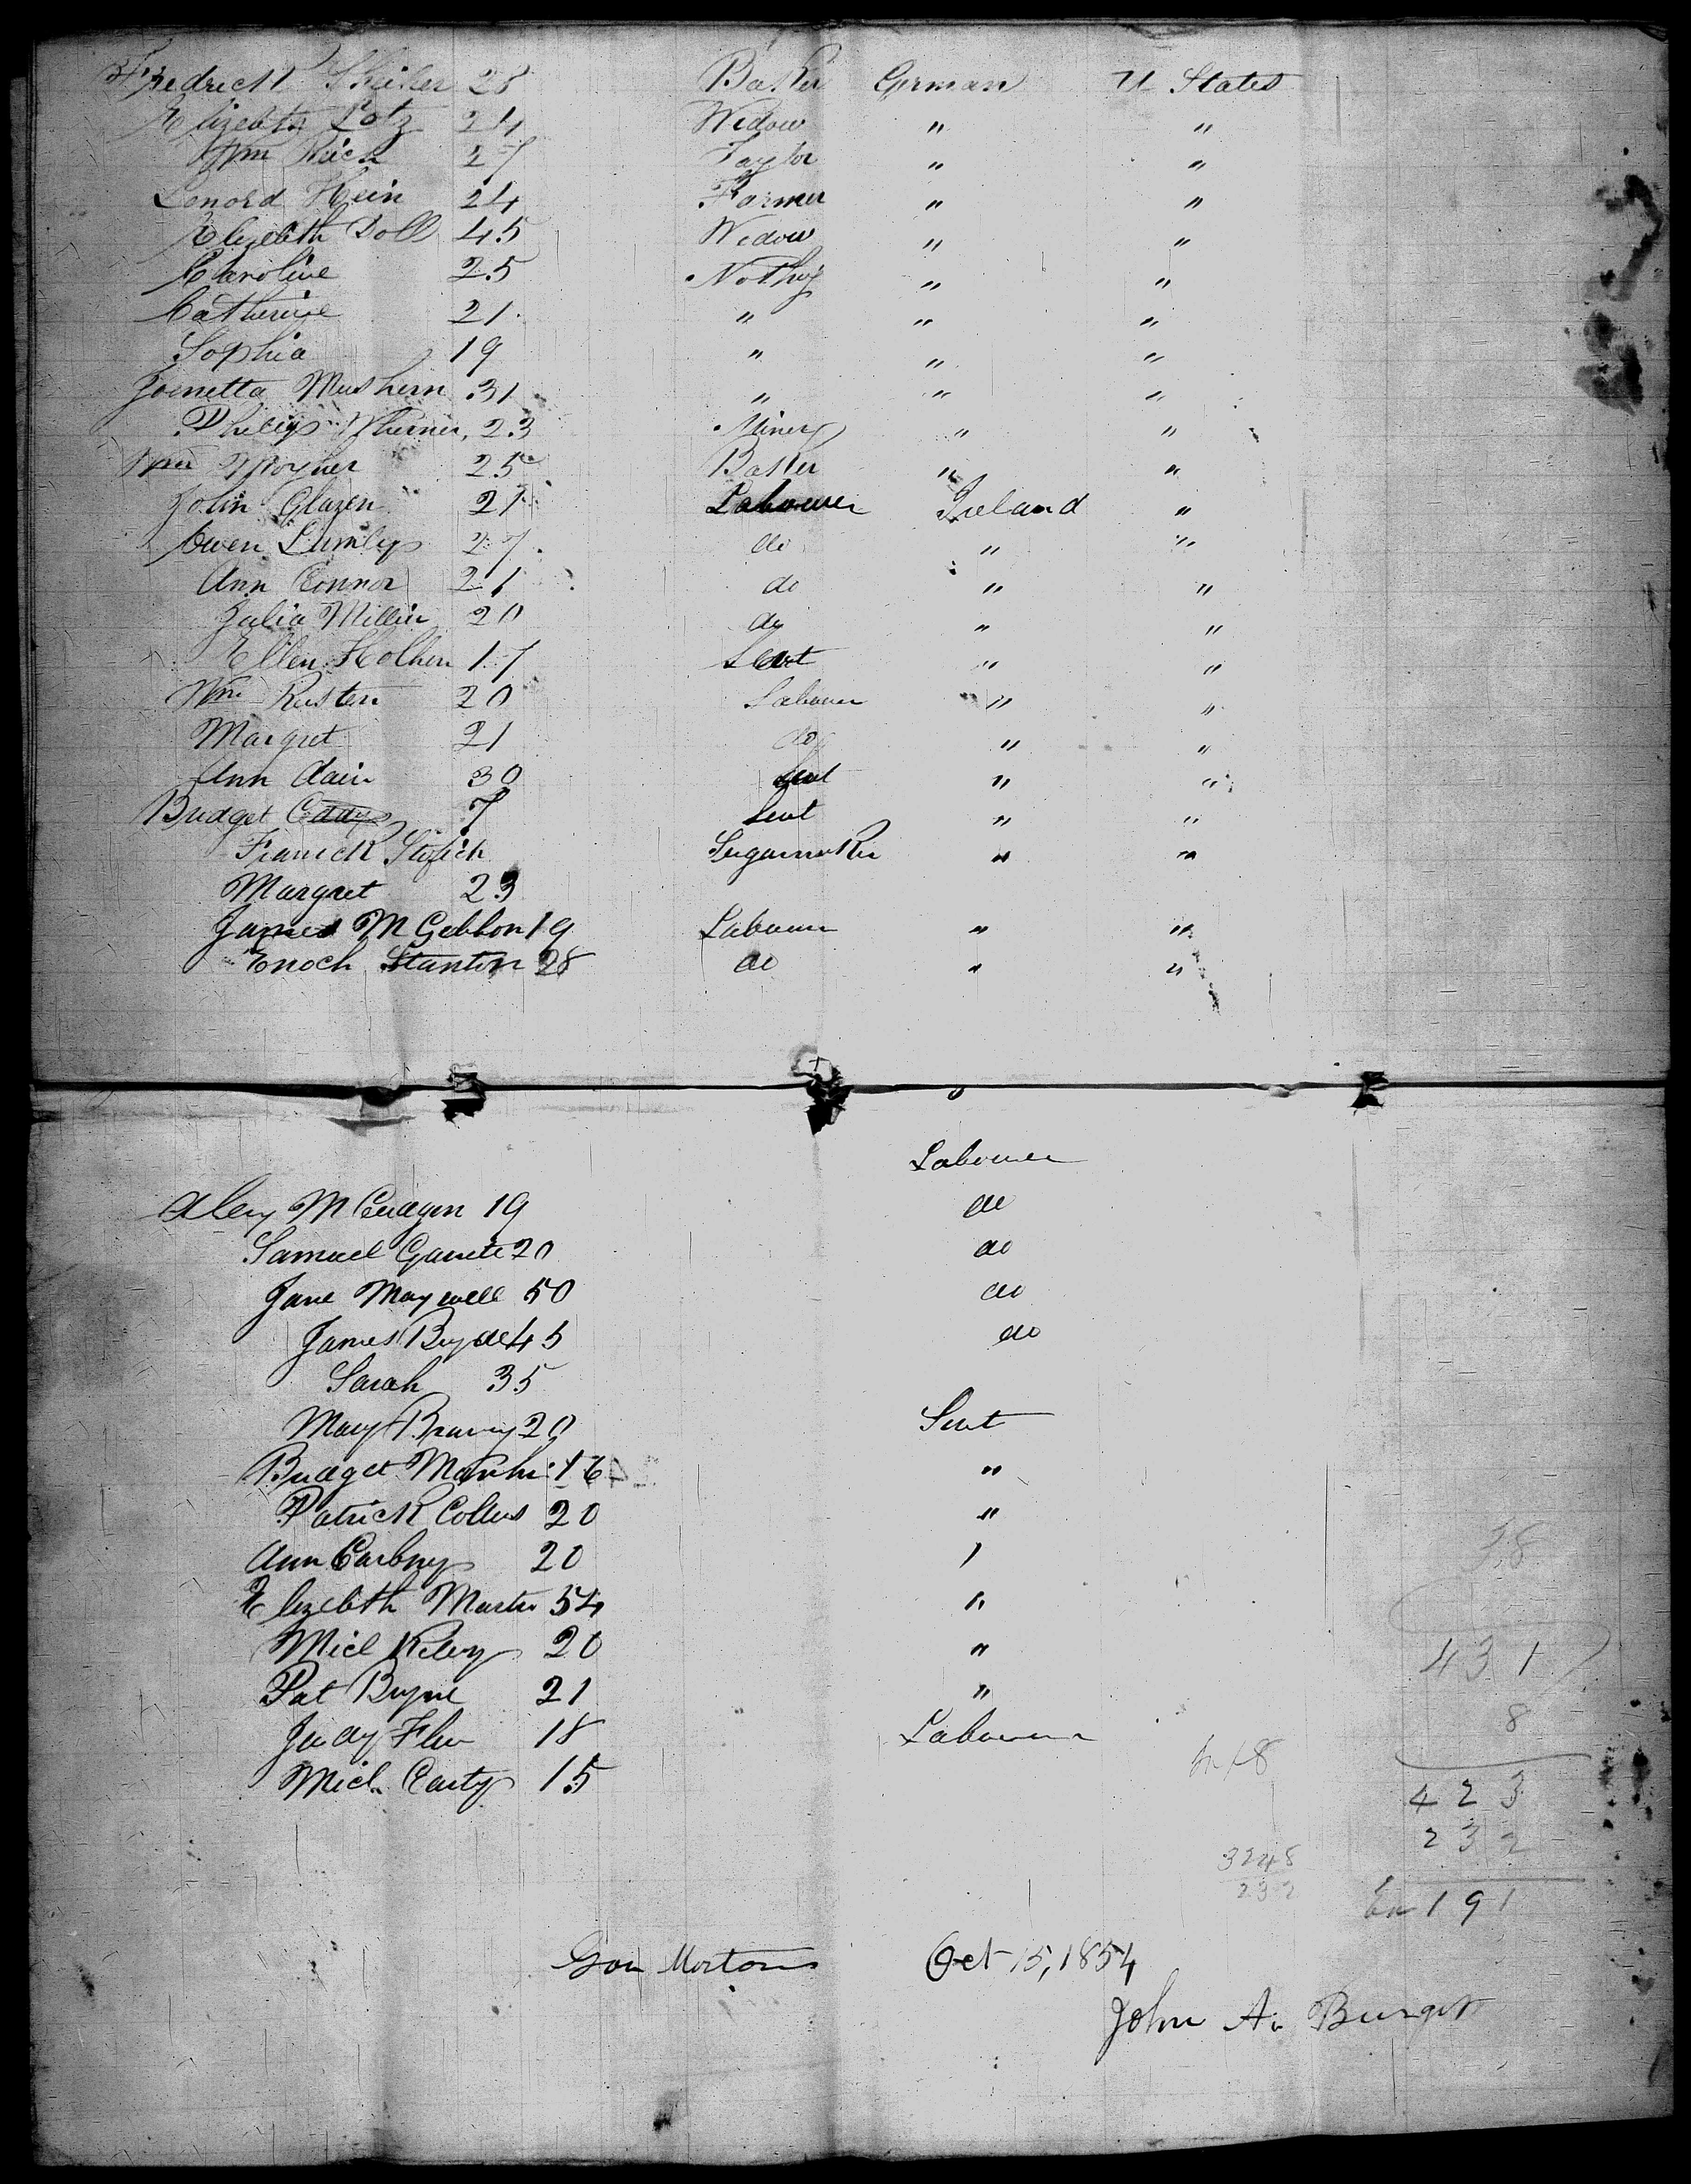 Fredrick Shiler 28 Baker German U States
Elizebth Lotz 24 Widow " "
Wm Rick 27 Taylor " "
Lenord Hein 24 Farmer " "
Elizebth Doll 45 Widow " "
Caroline 25 Nothig " "
Catherine 21 " " "
Sophia 19 " " "
Joenetta Mushern 31 " " "
Philip 23 Miner " "
Wm Moyner 25 Baker " "
John Glazen 21 Labourer Ireland "
Owen Lumley 27 do " "
Ann Connor 21 do " "
Julia Millin 20 do " "
Ellen Holhen 17 Servt " "
Wm Rusten 20 Labourer " "
Margret 21 do " "
Ann Clain 30 Servt " "
Bridget 7 Servt " "
Franick Sugarmaker " "
Margret 23
James M Gebbon 19 Labourer " "
Enoch Stanton 28 do " "
Labourer
Alexy M 19 do
Samuel Garrete 20 do
Jane Maxwell 50 do
James 45 do
Sarah 35
Mary 20 Servt
Bridget 16 "
Patrick Collins 20 "
Ann Carbny 20 "
Elizebth Martin 54 "
Micl Riley 20 "
Pat Byrne 21 "
Judy Flin 18 Labourer
Micl Carty 15
431
8
423
232
191
3248
232
Morton Oct 15, 1854
John A. Burget